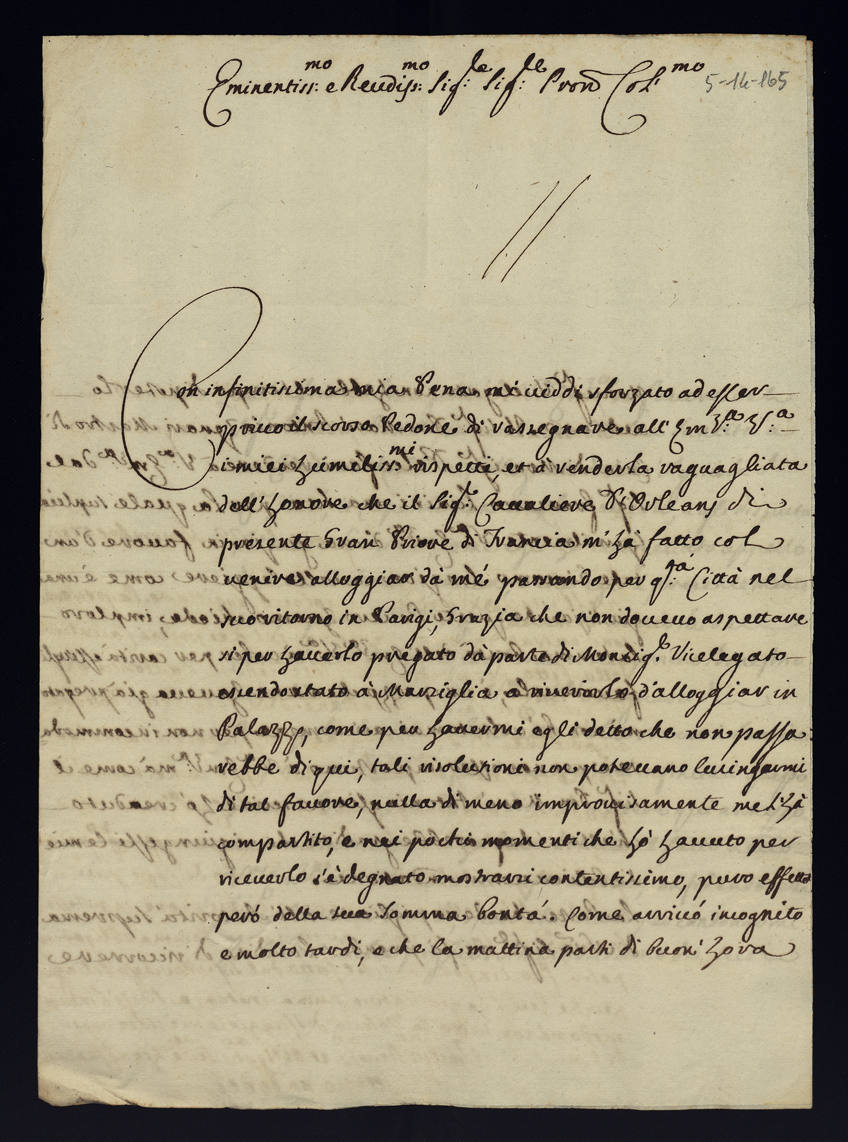 Eminentiss:mo e Reudiss:mo Sig:re Sig:re Pron Col:mo 5-14-165
Con infinitissima mia Pena mi viddi sforzato ad esser
privo il scorso Pedone di rassegnare all' Em:za V:a
i miei humiliss:mi rispetti, et à renderla raguagliata
dell' honore che il Sig:r Cavaliere d'Orleans di
presente Gran Priore di Francia m' hà fatto col
venire alloggiar dà mé passando per q:ta Città nel
suo ritorno in Parigi, Grazia che non dovevo aspettare
si per haverlo pregato dà parte di Monsig:r Vicelegato
essendo stato à Marziglia a riverirlo d'alloggiar in
Palazzo, come per havermi egli detto che non passa
rebbe di qui, tali risolutioni non potevano lusingarmi
di tal favore, nulla di meno improvisamente me l' hà
compartito, e nei pochi momenti che hò havuto per
riceverlo s'é degnato mostrarsi contentissimo, puro effetto
peró della sua somma bontá. Come arrivó incognito
e molto tardi, e che la mattina parti di buon' hora